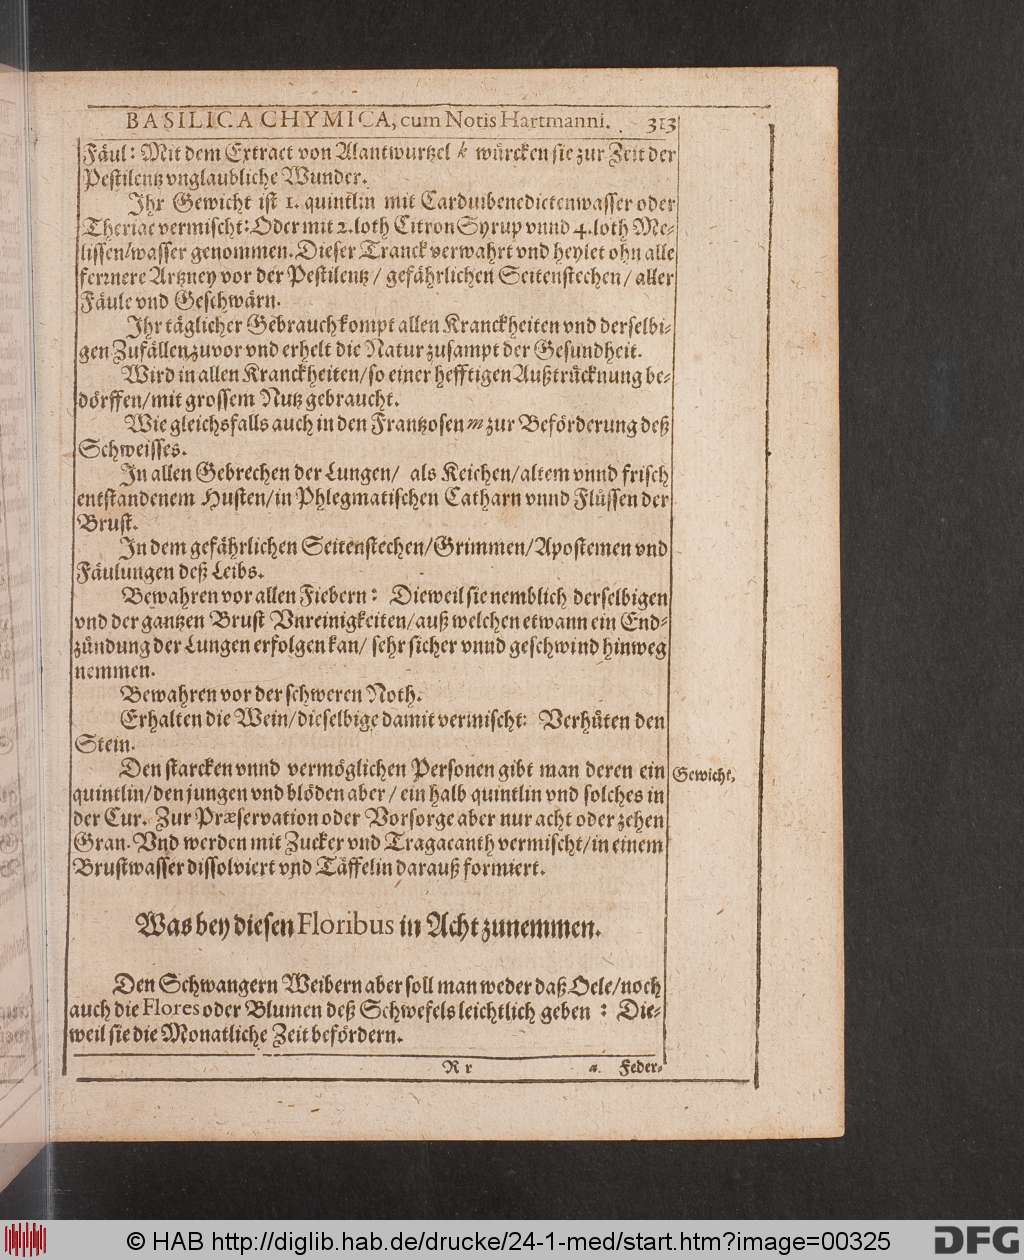 BASILICA CHYMICA, cum Notis Hartmanni. 313
Fäul: Mit dem Extract von Alantwurtzel k würcken sie zur Zeit der
Pestilentz vnglaubliche Wunder.
Ihr Gewicht ist 1. quintlin mit Carduibenedictenwasser oder
Theriac vermischt: Oder mit 2. loth Citron Syrup vnnd 4. loth Me-
lissen/wasser genommen. Dieser Tranck verwahrt vnd heylet ohn alle
fernere Artzney vor der Pestilentz/ gefährlichen Seitenstechen/ aller
Fäule vnd Geschwärn.
Ihr täglicher Gebrauch kompt allen Kranckheiten vnd derselbi-
gen Zufällen zuvor vnd erhelt die Natur zusampt der Gesundheit.
Wird in allen Kranckheiten/so einer hefftigen Außtrücknung be-
dörffen/mit grossem Nutz gebraucht.
Wie gleichsfalls auch in den Frantzosen m zur Beförderung deß
Schweisses.
In allen Gebrechen der Lungen/ als Keichen/altem vnnd frisch
entstandenem Husten/in Phlegmatischen Catharn vnnd Flüssen der
Brust.
In dem gefährlichen Seitenstechen/Grimmen/Apostemen vnd
Fäulungen deß Leibs.
Bewahren vor allen Fiebern: Dieweil sie nemblich derselbigen
vnd der gantzen Brust Vnreinigkeiten/auß welchen etwann ein End-
zündung der Lungen erfolgen kan/ sehr sicher vnnd geschwind hinweg
nemmen.
Bewahren vor der schweren Noth.
Erhalten die Wein/dieselbige damit vermischt: Verhüten den
Stein.
Den starcken vnnd vermöglichen Personen gibt man deren ein
Gewicht.
quintlin/den jungen vnd blöden aber/ ein halb quintlin vnd solches in
der Cur. Zur Præservation oder Vorsorge aber nur acht oder zehen
Gran. Vnd werden mit Zucker vnd Tragacanth vermischt/in einem
Brustwasser dissolviert vnd Täffelin darauß formiert.
Was bey diesen Floribus in Acht zunemmen.
Den Schwangern Weibern aber soll man weder daß Oele/noch
auch die Flores oder Blumen deß Schwefels leichtlich geben: Die-
weil sie die Monatliche Zeit befördern.
R r a. Feder-
© HAB http://diglib.hab.de/drucke/24-1-med/start.htm?image=00325
DFG